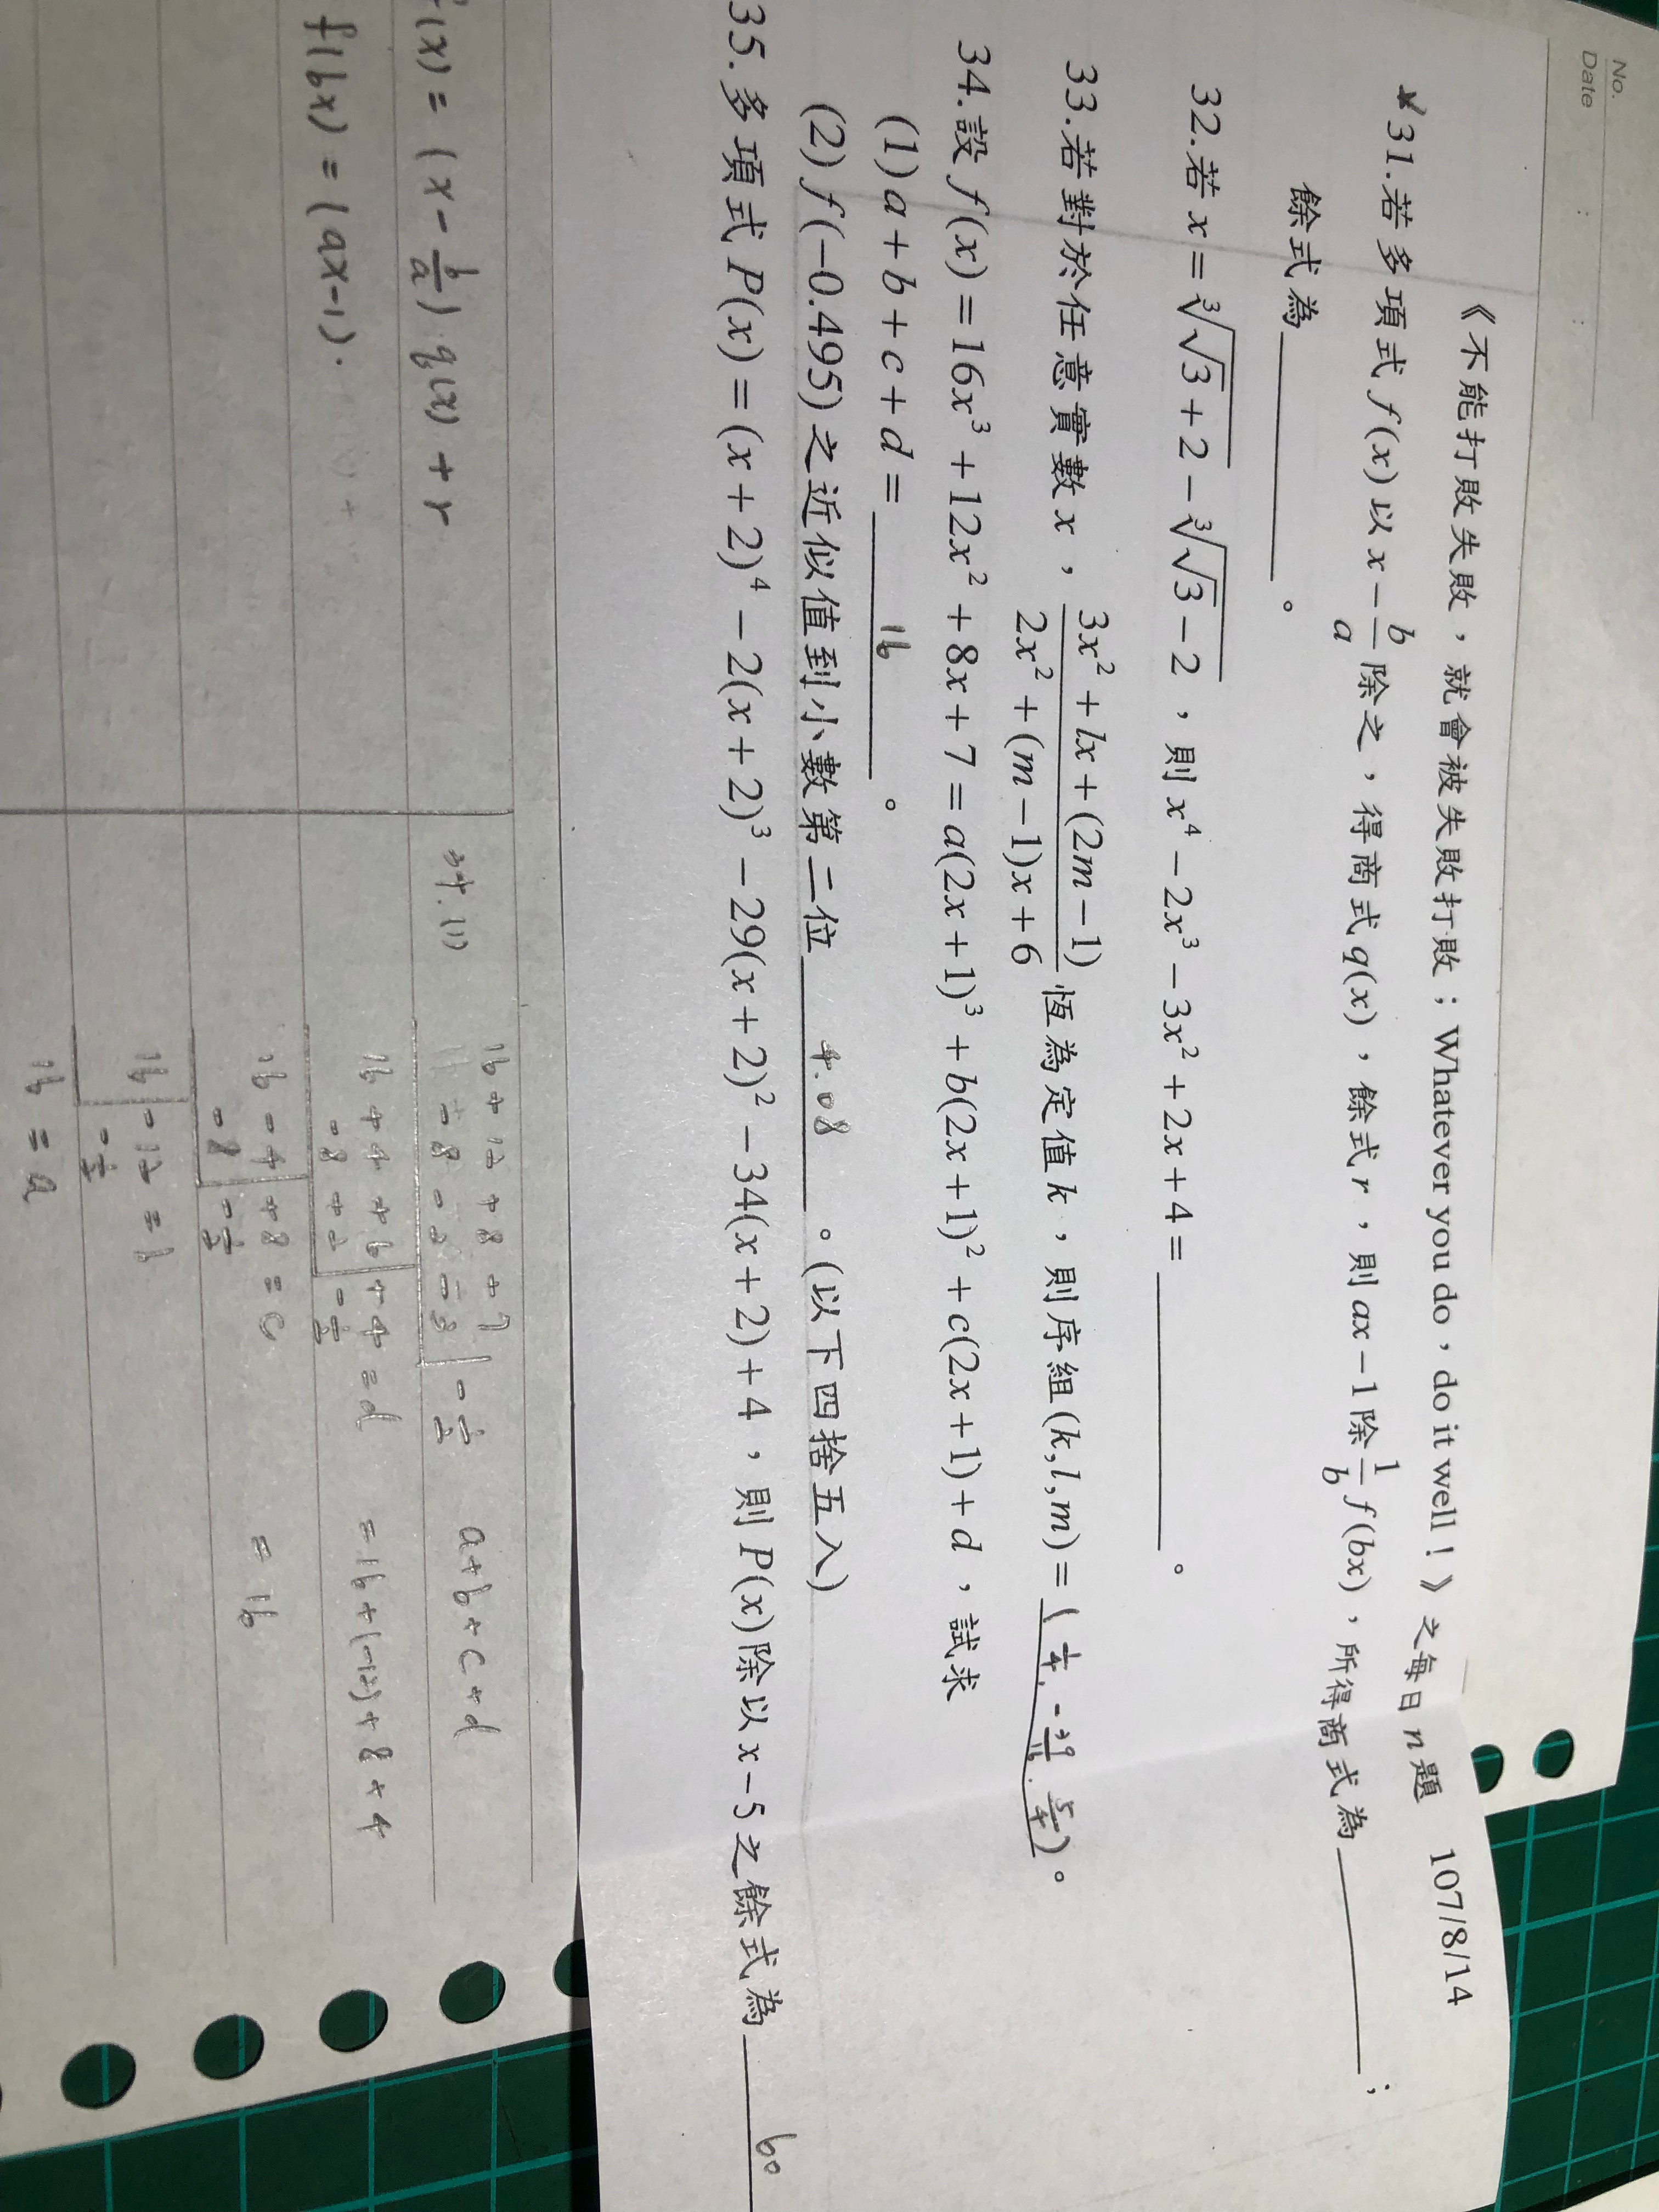 No.
Date : :
《不能打敗失敗，就會被失敗打敗；Whatever you do，do it well！》之每日 n 題 107/8/14
31.若多項式 f(x) 以 x − b/a 除之，得商式 q(x)，餘式 r，則 ax − 1 除 1/b f(bx)，所得商式為______；
餘式為______。
32.若 x = ∛(√3 + 2) − ∛(√3 − 2)，則 x⁴ − 2x³ − 3x² + 2x + 4 = ______。
33.若對於任意實數 x，(3x² + lx + (2m − 1))/(2x² + (m − 1)x + 6) 恆為定值 k，則序組(k,l,m) = (1/4, −39/16, 5/4)。
34.設 f(x) = 16x³ + 12x² + 8x + 7 = a(2x + 1)³ + b(2x + 1)² + c(2x + 1) + d，試求
(1) a + b + c + d = 16。
(2) f(−0.495) 之近似值到小數第二位 4.08。(以下四捨五入)
35.多項式 P(x) = (x + 2)⁴ − 2(x + 2)³ − 29(x + 2)² − 34(x + 2) + 4，則 P(x) 除以 x − 5 之餘式為 60
f(x) = (x − b/a) q(x) + r
f(bx) = (ax−1).
34.(1)
16 + 12 + 8 + 7
− 8 − 2 − 3 | −1/2
16 + 4 + 6 + 4 = d
− 8 + 2 | −1/2
16 − 4 + 8 = c
− 8 | −1/2
16 − 12 = b
−1/2
16 = a
a + b + c + d
= 16 + (−12) + 8 + 4
= 16